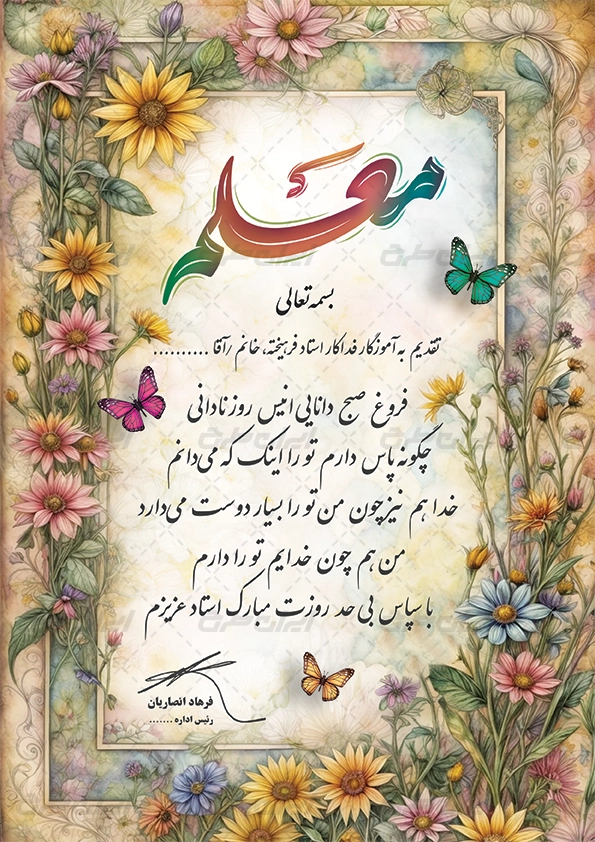 معلم
بسمه تعالی
تقدیم به آموزگار فداکار استاد فرهیخته، خانم /آقا ..........
فروغ صبح دانایی انیس روز نادانی
چگونه پاس دارم تو را اینک که می‌دانم
خدا هم نیز چون من تو را بسیار دوست می‌دارد
من هم چون خدایم تو را دارم
با سپاس بی حد روزت مبارک استاد عزیزم
فرهاد انصاریان
رئیس اداره .......